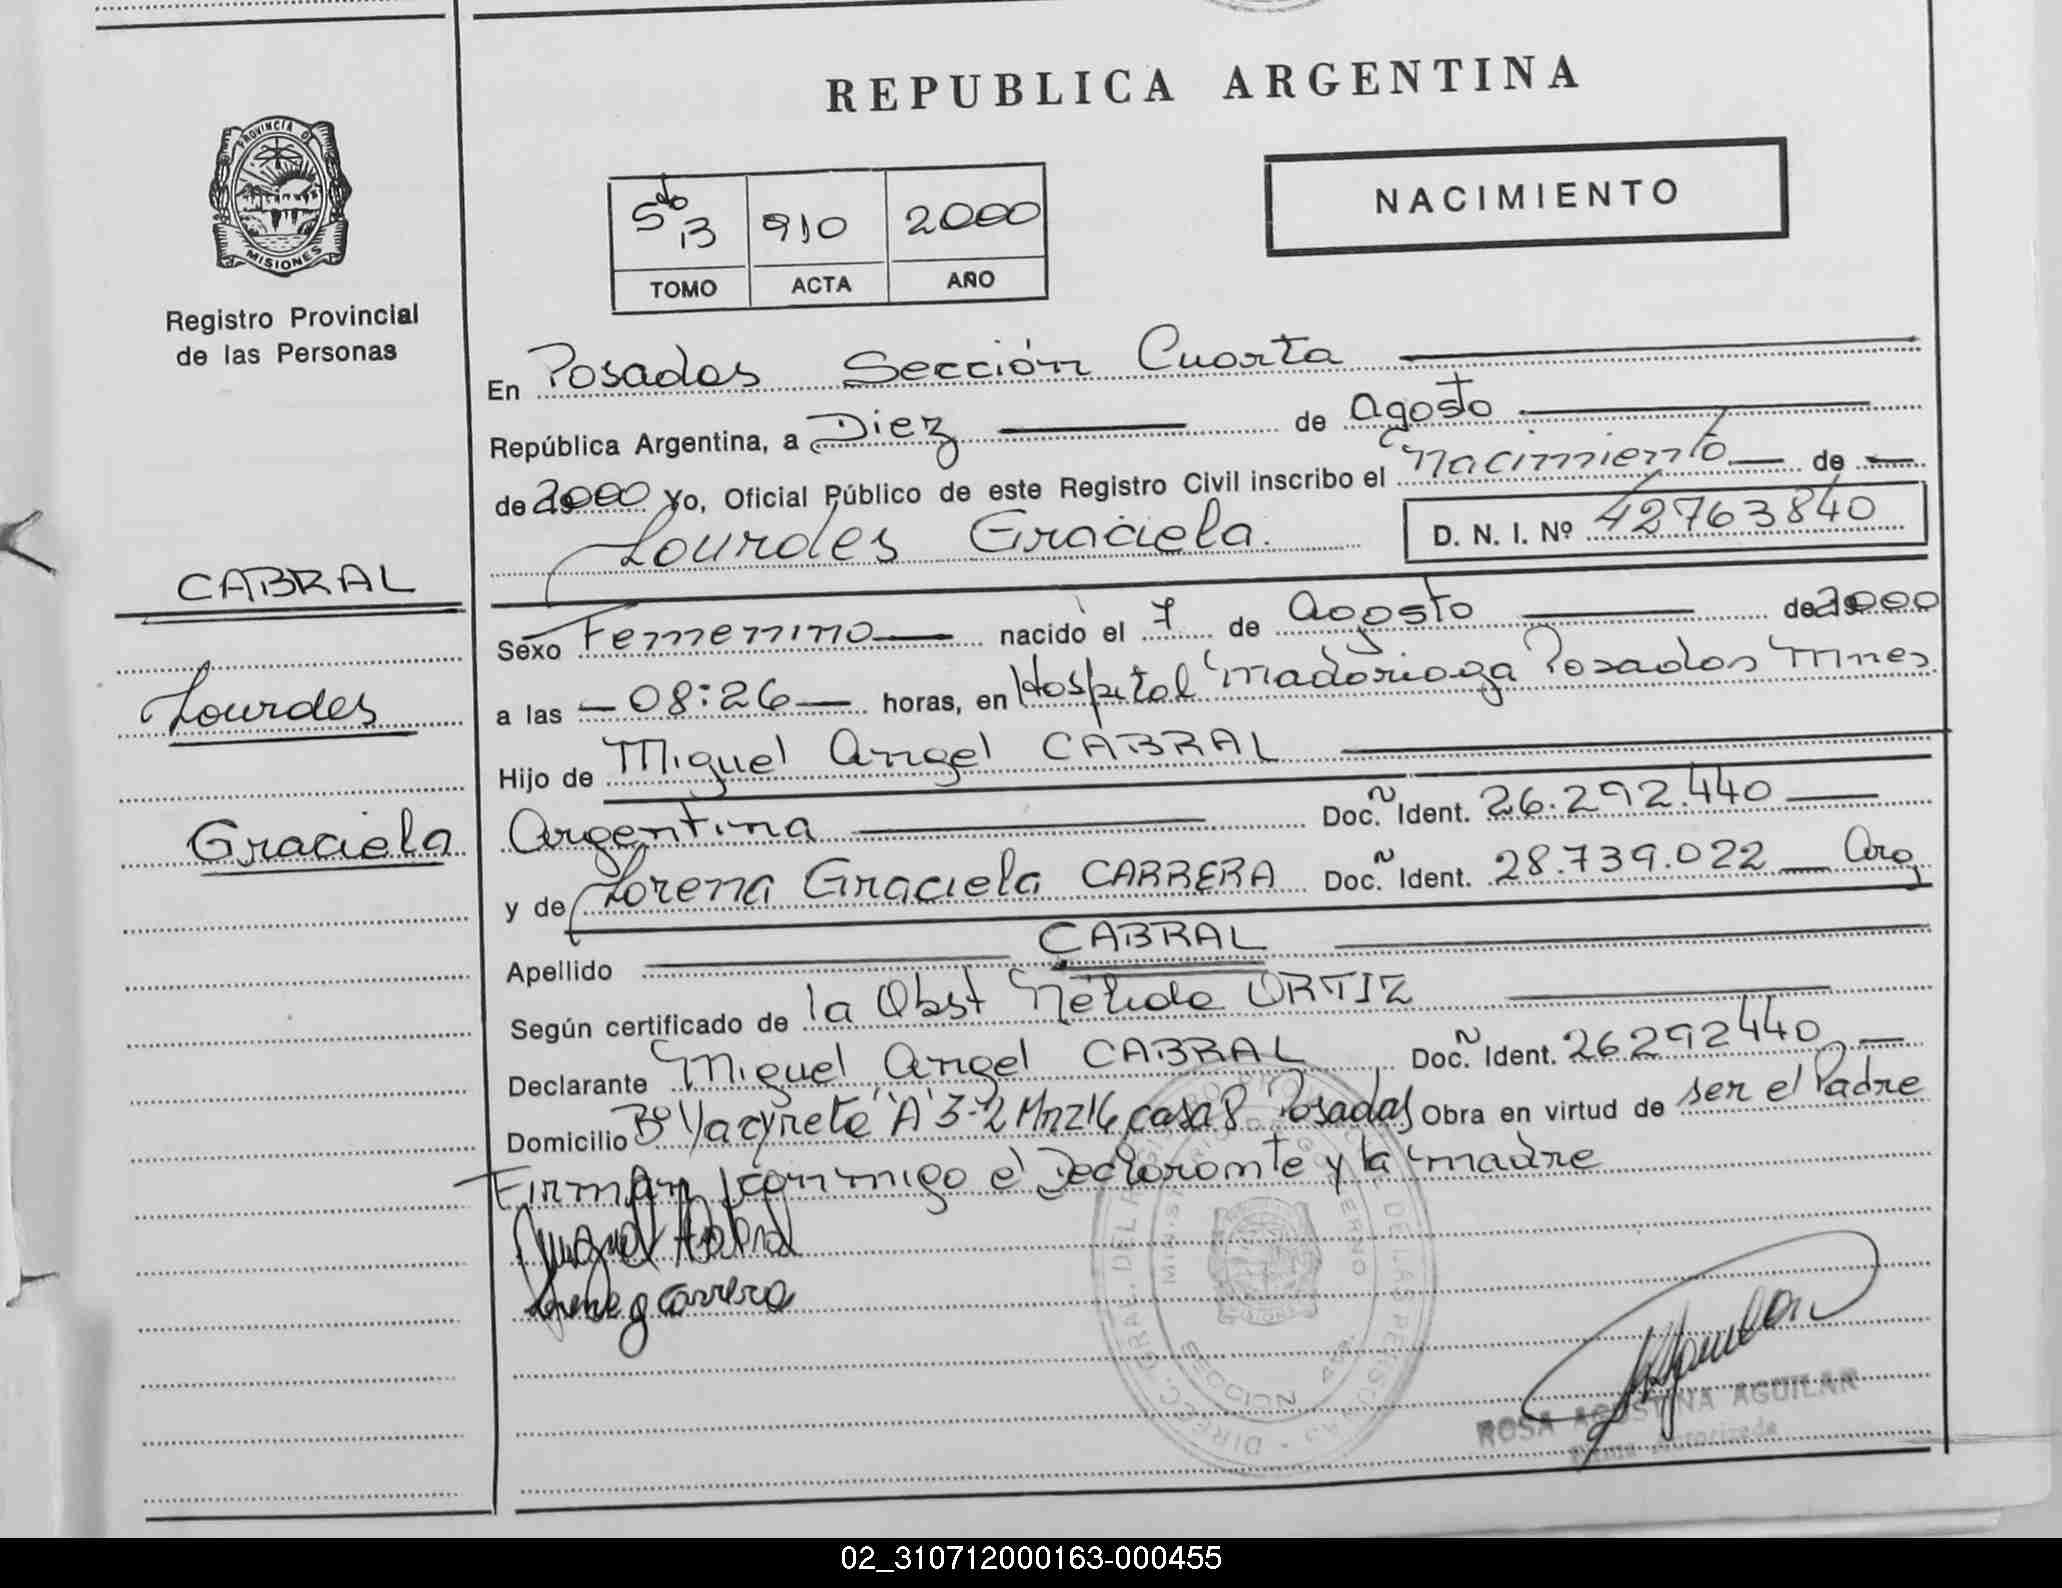 REPUBLICA ARGENTINA
PROVINCIA DE
MISIONES
Registro Provincial
de las Personas
NACIMIENTO
5to 13 910 2000
TOMO ACTA AÑO
En Posadas Sección Cuarta
República Argentina, a Diez de Agosto
de 2000 Yo, Oficial Público de este Registro Civil inscribo el Nacimiento de
Lourdes Graciela. D. N. I. Nº 42763840
CABRAL
Lourdes
Graciela
Sexo Femenino nacido el 7 de Agosto de 2000
a las 08:26 horas, en Hospital Madariaga Posadas Mnes.
Hijo de Miguel Angel CABRAL
Argentina Doc. Ident. 26.292.440
y de Lorena Graciela CARRERA Doc. Ident. 28.739.022 Arg
Apellido CABRAL
Según certificado de la Obst Nélida ORTIZ
Declarante Miguel Angel CABRAL Doc. Ident. 26292440
Domicilio Bº Yacyreta "A" 3-2 Mnz 16 casa 8 Posadas Obra en virtud de ser el Padre
Firman conmigo el Declarante y la madre
Miguel Cabral
Carrera
DIREC. GRAL. DEL REGISTRO PROVINCIAL DE LAS PERSONAS
MINISTERIO DE GOBIERNO
MISIONES
SECCION 4ta
ROSA AGOSTINA AGUILAR
Firma Autorizada
02_310712000163-000455